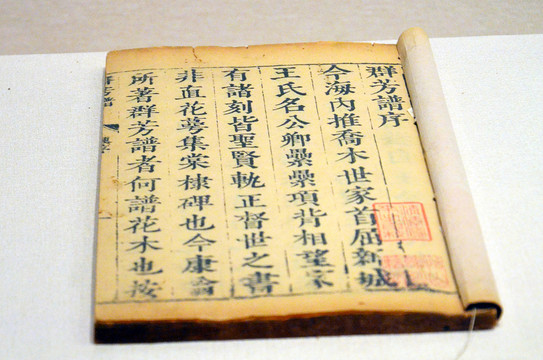 群芳譜序
今海內推喬木世家首屈新城
王氏名公卿纍纍項背相望家
有諸刻皆聖賢軌正督世之書
非血花萼集棠棣碑也今康侖
所著群芳譜者何譜花木也按